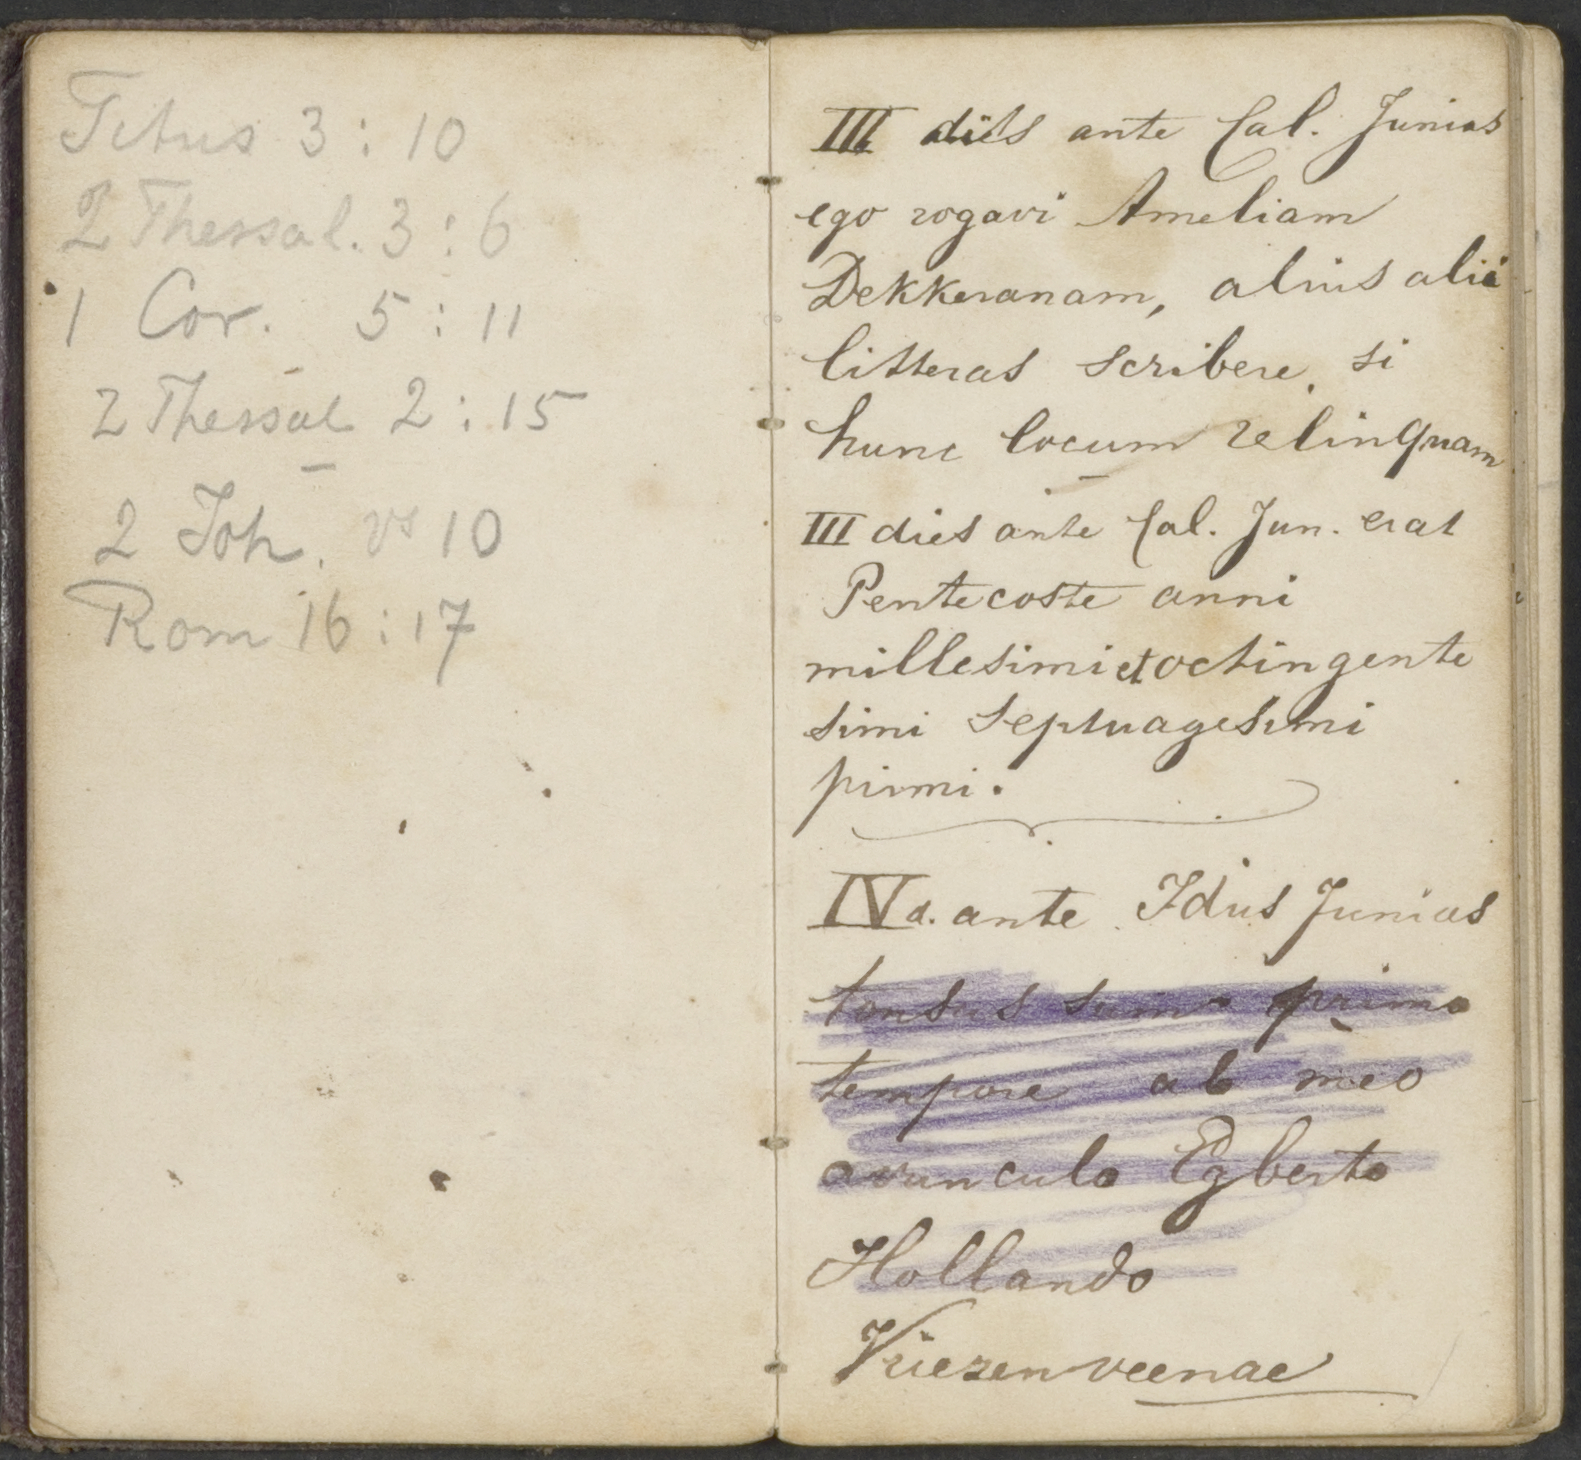 Titus 3 : 10
2 Thessal. 3 : 6
1 Cor. 5 : 11
2 Thessal 2 : 15
2 Joh. vs 10
Rom 16 : 17
III dies ante Cal. Junias
ego rogavi Ameliam
Dekkeranam, alius alii
litteras scribere, si
hunc locum relinquam
III dies ante Cal. Jun. erat
Pentecoste anni
millesimi et octingente
simi septuagesimi
pirmi.
IV d. ante Idus Junias
tonsus sum primo
tempore ab meo
avunculo Egberto
Hollando
Vriezenveenae